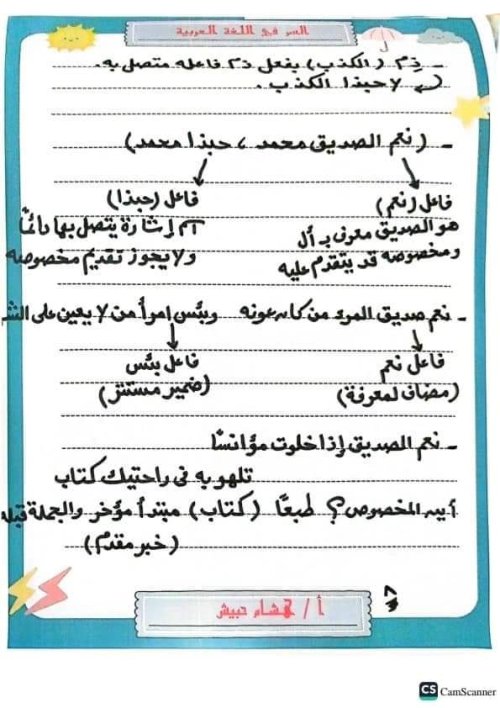 السر في اللغة العربية
- ذم (الكذب) بفعل ذم فاعله متصل به.
لا حبذا الكذب.
- (نعم الصديق محمد، حبذا محمد)
فاعل (نعم)
هو الصديق معرف بـ أل
ومخصوصه قد يتقدم عليه
فاعل (حبذا)
اسم إشارة يتصل بها دائمًا
ولا يجوز تقديم مخصوصه
- نعم صديق المرء من كان عونه وبئس امرأ من لا يعين على
فاعل نعم
(مضاف لمعرفة)
فاعل بئس
(ضمير مستتر)
- نعم الصديق إذا خلوت مؤانسًا
تلهو به في راحتيك كتاب
أين المخصوص؟ طبعًا (كتاب) مبتدأ مؤخر والجملة قبله
(خبر مقدم)
أ / هشام حبيش
CS CamScanner